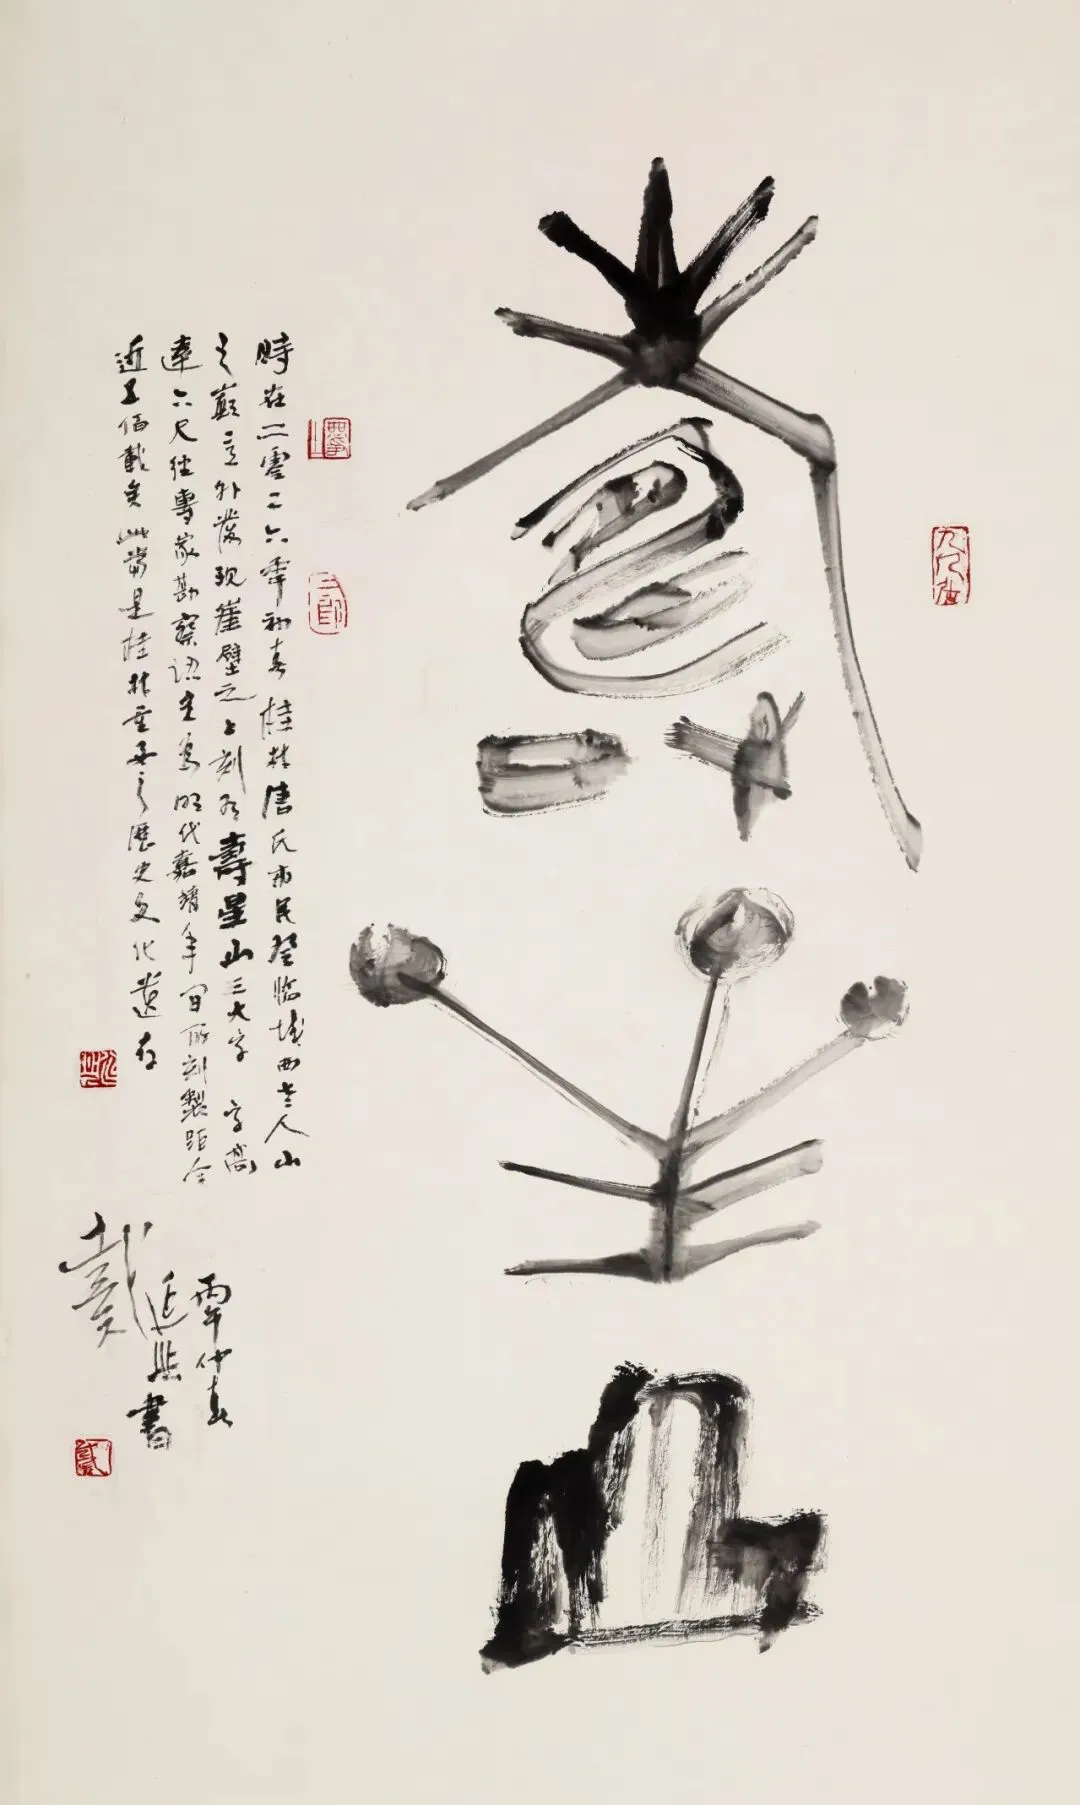 壽星山
時在二零二六年初春桂林唐氏市民登臨城西老人山
之巔意外發現崖壁之上刻有壽星山三大字 字高
達六尺經專家勘察認定為明代嘉靖年間所刻製距今
近五佰載矣此當是桂林重要之歷史文化遺存
丙午仲春
戴延興書